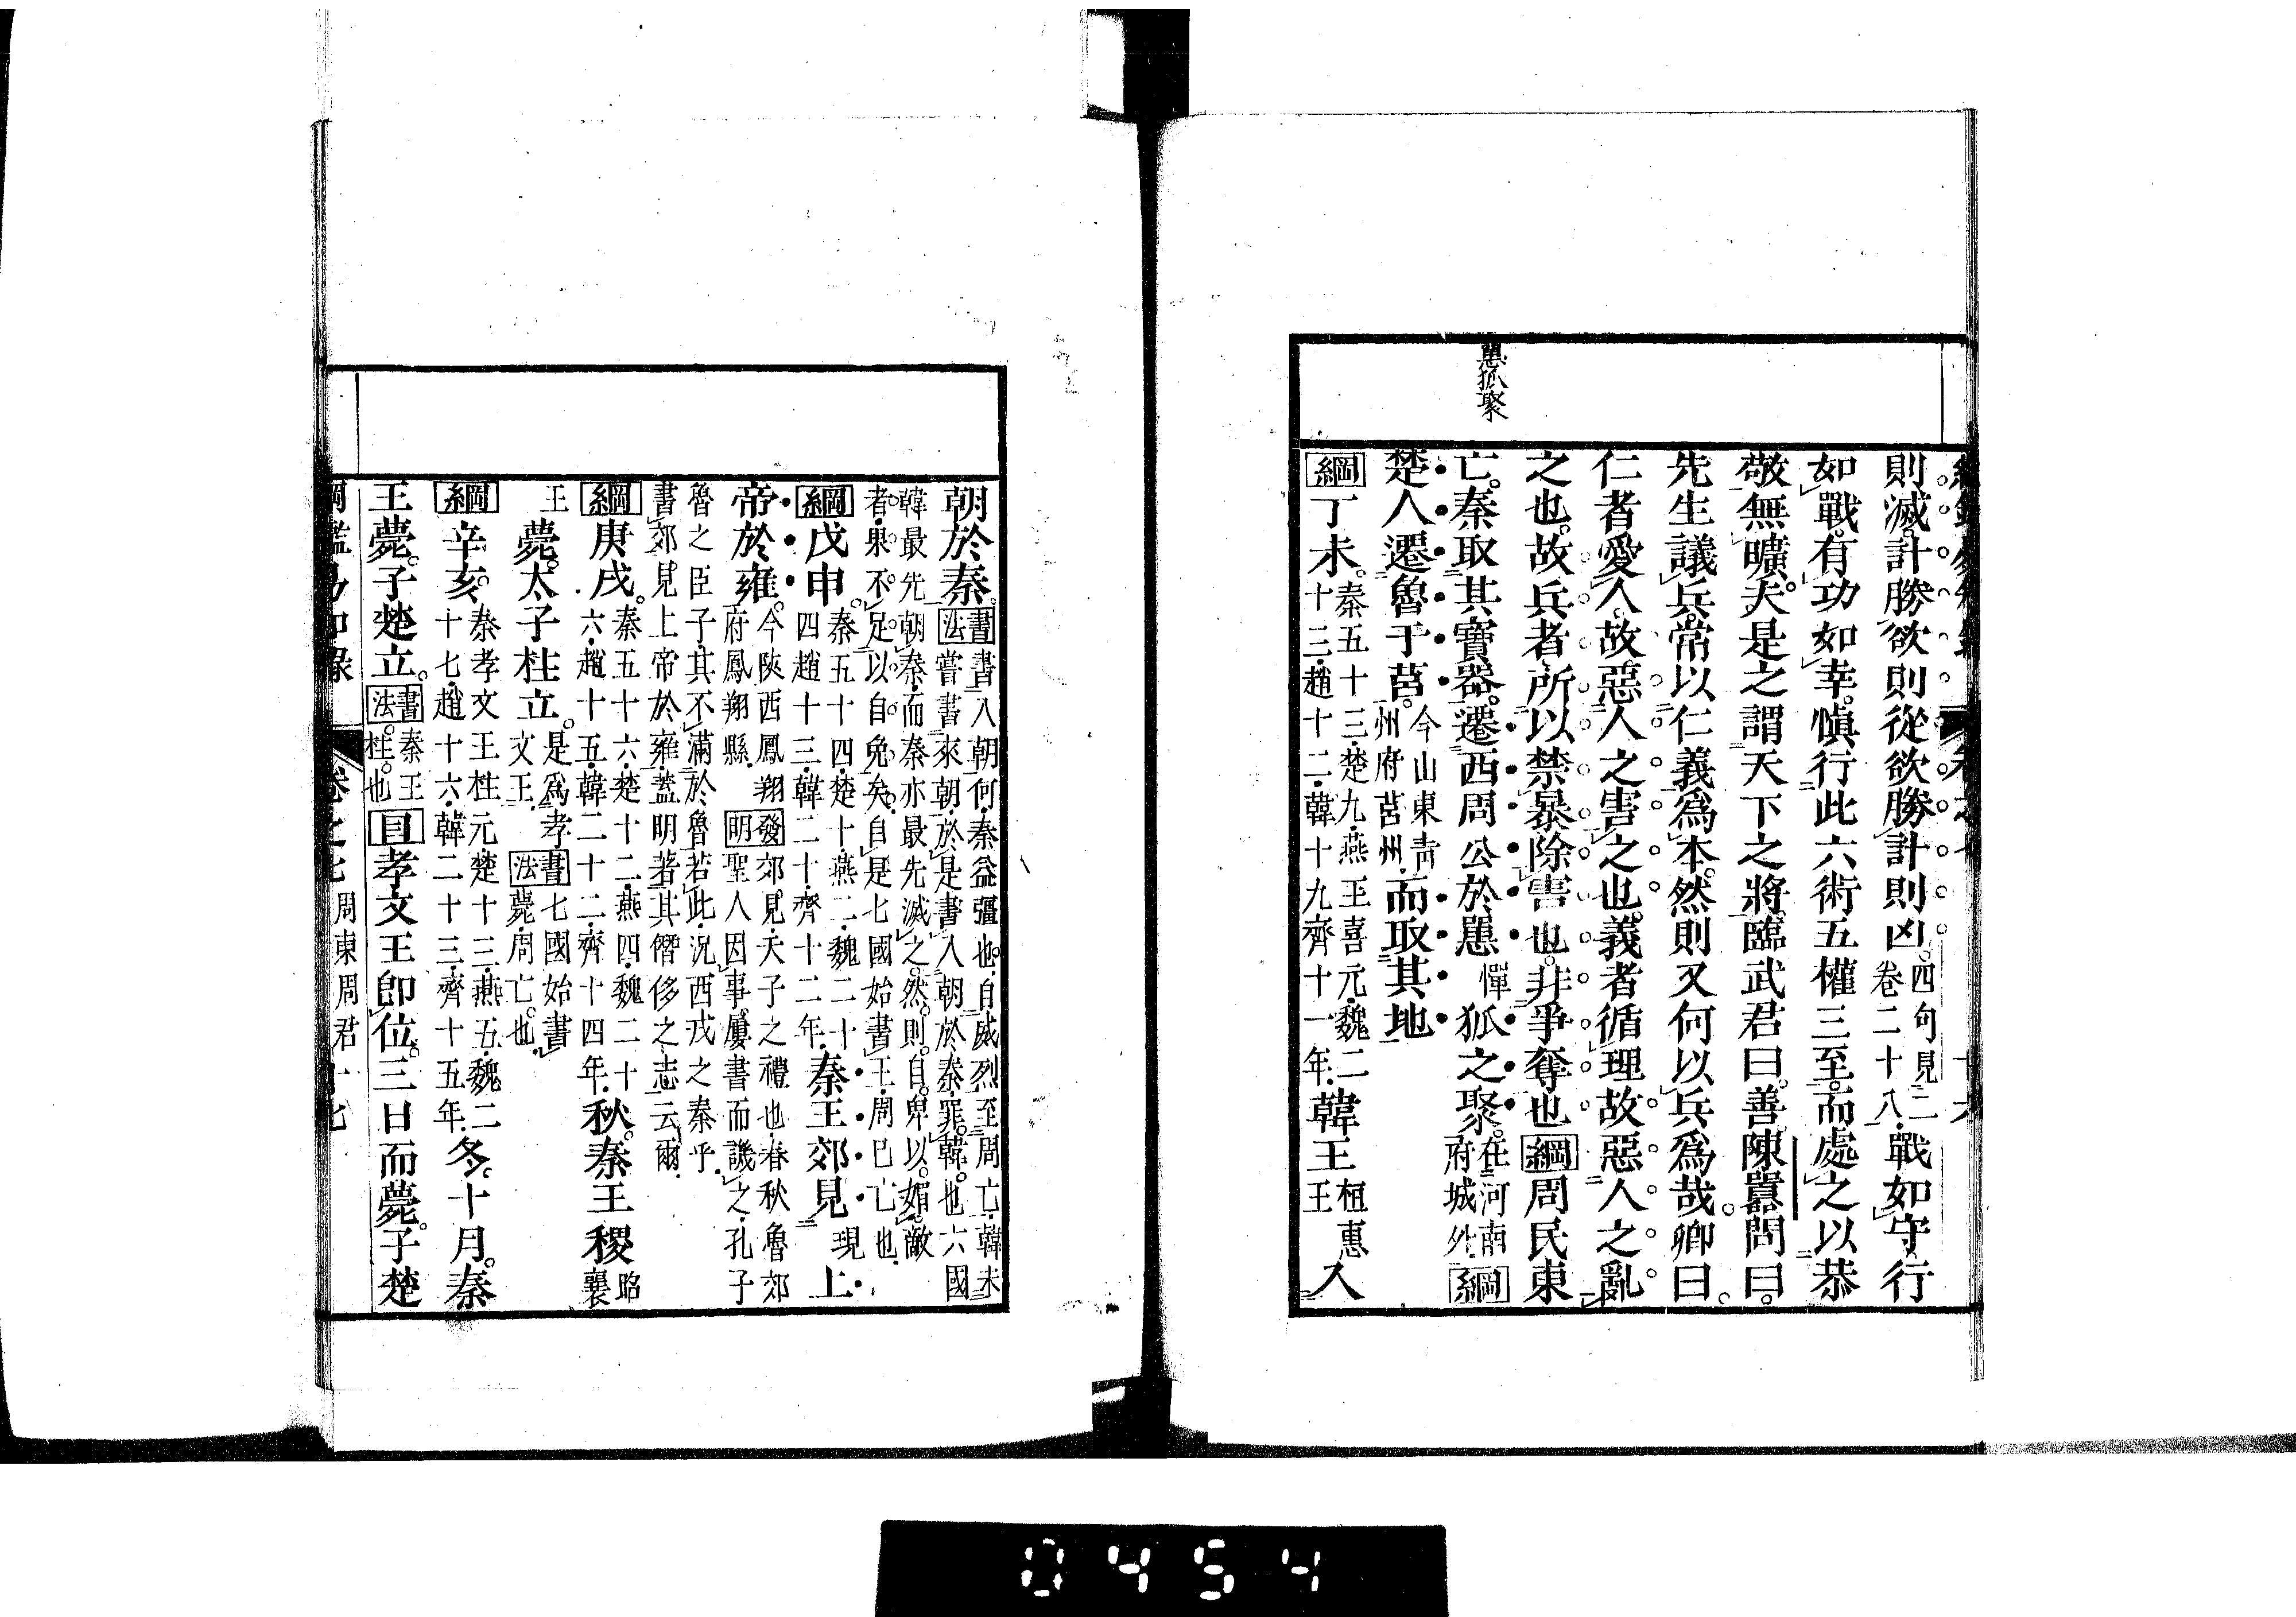 則滅。計勝欲則從欲勝計則凶。四句見二卷二十八。戰如守。行
如戰。有功如幸。愼行此六術五權三至。而處之以恭
敬無曠。夫是之謂天下之將。臨武君曰。善陳囂問曰。
先生議兵。常以仁義爲本。然則又何以兵爲哉。卿曰。
仁者愛人。故惡人之害之也。義者循理故惡人之亂
之也。故兵者所以禁暴除害也。非爭奪也綱周民東
亡。秦取其寶器。遷西周公於𢠸憚狐之聚。在河南府城外。綱
楚人遷魯于莒。今山東青州府莒州。而取其地
綱丁未。秦五十三。楚九。燕王喜元。魏二十三。趙十二。韓十九齊十一年。韓王桓惠王入
𢠸狐聚
朝於秦。書法書入朝何。秦益彊也。自威烈至周亡。韓未嘗書來朝。於是書入朝於秦。罪韓也。六國
韓最先朝秦。而秦亦最先滅之。然則自卑以媚敵者。果不足以自免矣。自是七國始書王。周已亡也。
綱戊申。秦五十四。楚十。燕二。魏二十四趙十三。韓二十。齊十二年。秦王郊見現上
帝於雍。今陝西鳳翔府鳳翔縣。發明郊見。天子之禮也。春秋魯郊聖人因事屢書而譏之。孔子
魯之臣子。其不滿於魯若此。況西戎之秦乎。書郊見上帝於雍。蓋明著其僭侈之志云爾。
綱庚戌。秦五十六。楚十二。燕四。魏二十六。趙十五。韓二十二。齊十四年。秋。秦王稷昭襄
王薨。太子柱立。是爲孝文王。書法七國始書薨。周亡也。
綱辛亥。秦孝文王柱元楚十三。燕五。魏二十七。趙十六。韓二十三。齊十五年。冬。十月。秦
王薨。子楚立。書法秦王柱。也目孝文王卽位。三日而薨。子楚
綱鑑易知錄 卷之七 周東周君 十七
0454